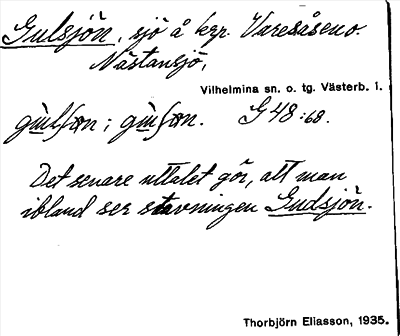 Gulsjön, sjö å krp. Varesåsen o.
Nästansjö,
Vilhelmina sn. o. tg. Västerb. l.
G 48:68.
Det senare uttalet gör, att man
ibland ser stavningen Gudsjön.
Thorbjörn Eliasson, 1935.